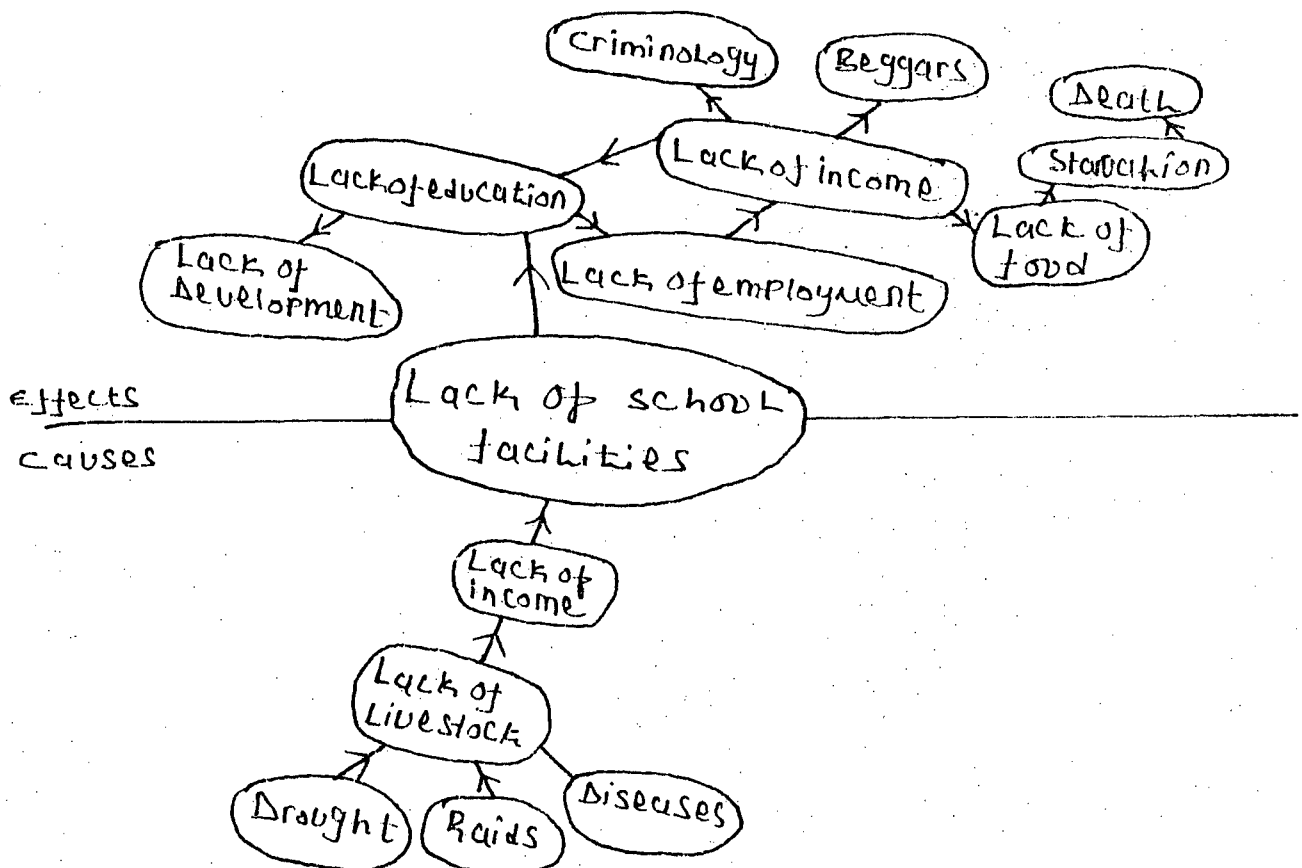 Criminology
Beggars
Death
Starvation
Lack of income
Lack of education
Lack of
food
Lack of
Development
Lack of employment
Effects
Lack of school
facilities
causes
Lack of
income
Lack of
Livestock
Drought
Raids
Diseases